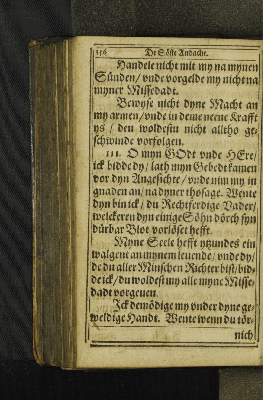 256 De Söste Andacht.
Handele nicht mit my na mynen
Sünden/ vnde vorgelde my nicht na
myner Missedadt.
Bewyse nicht dyne Macht an
my armen/ vnde in deme neene Krafft
ys / den woldestu nicht alltho ge-
schwinde vorfolgen.
III. O myn GOdt vnde HEre/
ick bidde dy/ lath myn Gebedt kamen
vor dyn Angesichte/ vnde nim my in
gnaden an/ na dyner thosage. Wente
dyn bin ick/ du Rechtferdige Vader/
welckeren dyn einige Söhn dörch syn
dürbar Blot vorlöset hefft.
Myne Seele hefft ytzundes ein
walgent an mynem leuende/ vnde dy/
de du aller Minschen Richter bist/ bid-
de ick/ du woldest my alle myne Misse-
dadt vorgeuen.
Ick demödige my vnder dyne ge-
weldige Handt. Wente wenn du tör-
nich